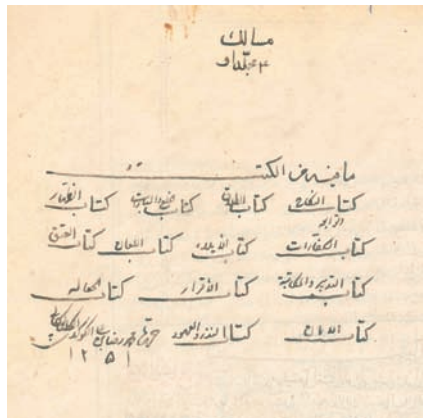 مسالك
مافيه من الكتب
كتاب النكاح كتاب الطلاق كتاب الخلع والمبارات كتاب الظهار
كتاب الكفارات كتاب الايلاء كتاب اللعان كتاب العتق
كتاب التدبير والمكاتبة كتاب الاقرار كتاب الجعاله
كتاب الايمان كتاب النذر والعهود
١٢٥١